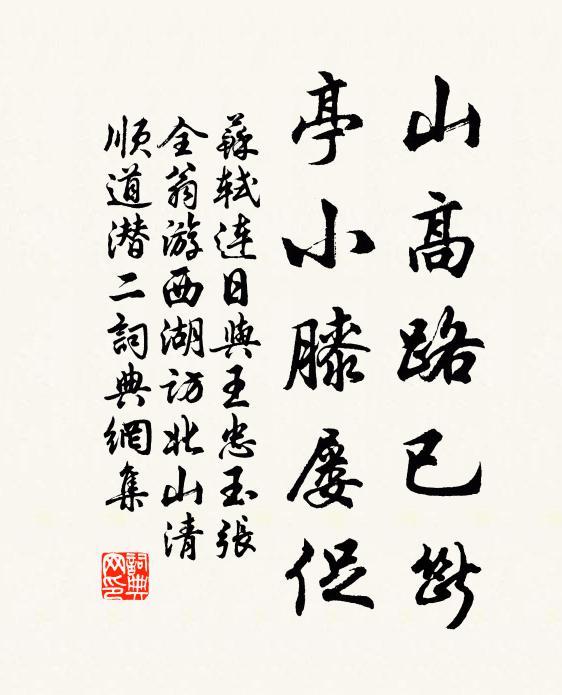 山高路已斷
亭小膝屡促
蘇軾連日與王忠玉張
全翁游西湖访北山清
順道潜二詞典網集
詞典
网印